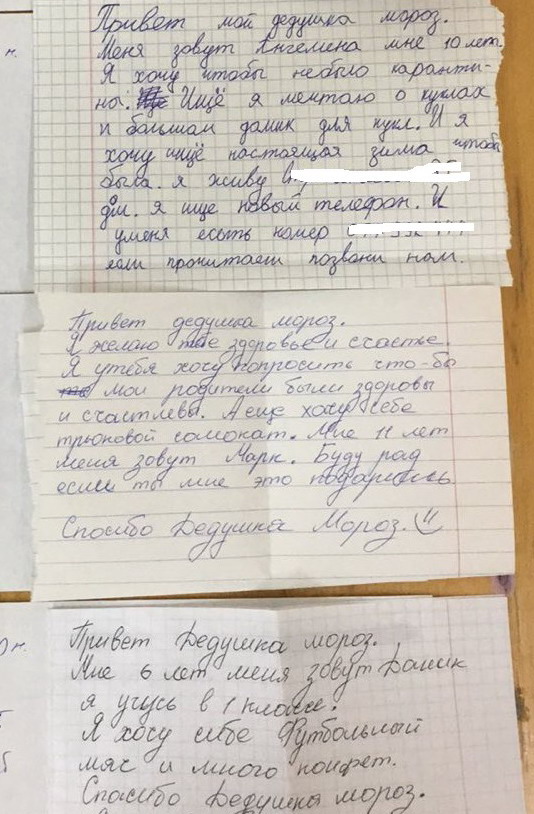 Привет мой дедушка мороз.
Меня зовут Ангелина мне 10 лет.
Я хочу чтобы небыло каранти-
на. Ищё я мечтаю о куклах
и большом домик для кукл. И я
хочу ищё настоящая зима чтобы
была. я живу
дм. я ище новый телефон. И
уменя есыть номер
если прочитаеш позвони нам.
Привет дедушка мороз.
Я желаю тебе здоровье и счастье.
Я утебя хочу попросить что-бы
мои родители были здоровы
и счастлевы. А еще хочу себе
трюковой самокат. Мне 11 лет
меня зовут Марк. Буду рад
если ты мне это подаришь
Спосибо Дедушка Мороз.
Привет Дедушка мороз.
Мне 6 лет меня зовут Даник
я учусь в 1 классе.
Я хочу себе Футбольный
мяс и много конфет.
Спосибо Дедушка мороз.